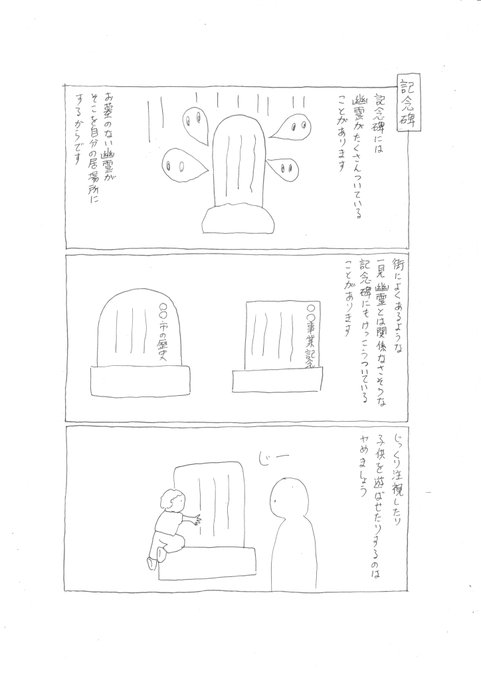 記念碑
記念碑には
幽霊がたくさんついている
ことがあります
お墓のない幽霊が
そこを自分の居場所に
するからです
街によくあるような
一見幽霊とは関係なさそうな
記念碑にもけっこうついている
ことがあります
〇〇事業記念
〇〇市の歴史
じっくり注視したり
子供を遊ばせたりするのは
やめましょう
じー